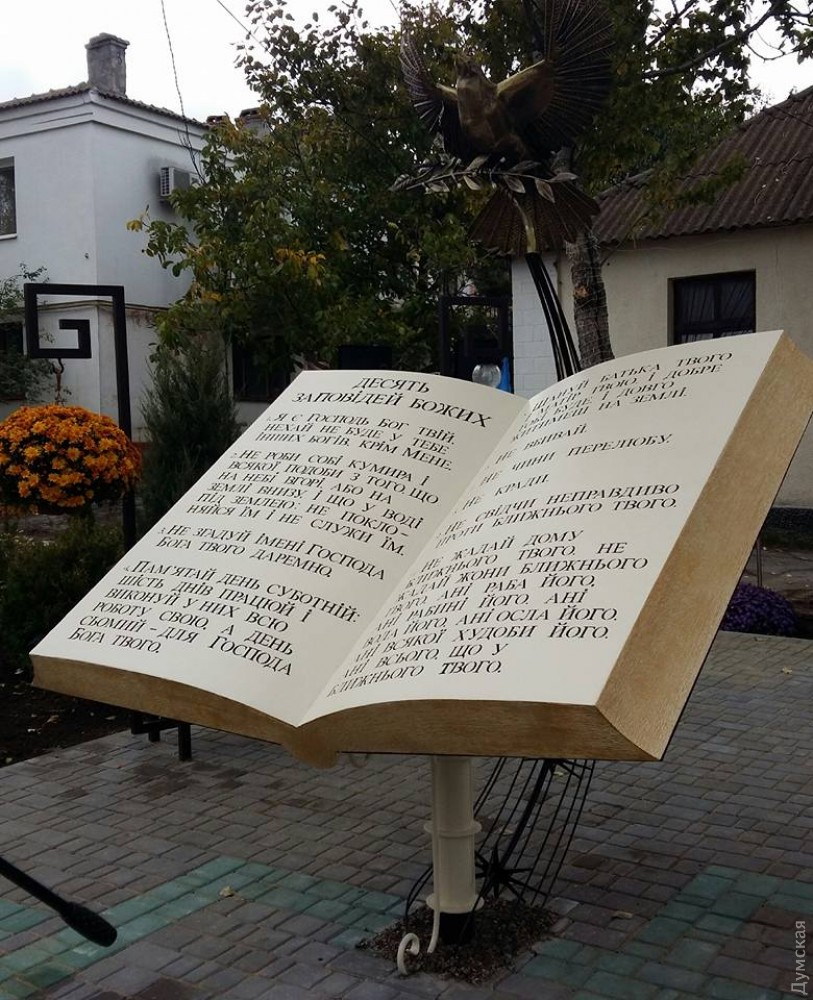 ДЕСЯТЬ
ЗАПОВІДЕЙ БОЖИХ
1. Я Є ГОСПОДЬ БОГ ТВІЙ.
НЕХАЙ НЕ БУДЕ У ТЕБЕ
ІНШИХ БОГІВ, КРІМ МЕНЕ.
2. НЕ РОБИ СОБІ КУМИРА І
ВСЯКОЇ ПОДОБИ З ТОГО, ЩО
НА НЕБІ ВГОРІ, АБО НА
ЗЕМЛІ ВНИЗУ, І ЩО У ВОДІ
ПІД ЗЕМЛЕЮ: НЕ ПОКЛО-
НЯЙСЯ ЇМ І НЕ СЛУЖИ ЇМ.
3. НЕ ЗГАДУЙ ІМЕНІ ГОСПОДА
БОГА ТВОГО ДАРЕМНО.
4. ПАМ'ЯТАЙ ДЕНЬ СУБОТНІЙ:
ШІСТЬ ДНІВ ПРАЦЮЙ І
ВИКОНУЙ У НИХ ВСЮ
РОБОТУ СВОЮ, А ДЕНЬ
СЬОМИЙ – ДЛЯ ГОСПОДА
БОГА ТВОГО.
БАТЬКА ТВОГО
І МАТІР ТВОЮ І ДОБРЕ
ТОБІ БУДЕ І ДОВГО
НА ЗЕМЛІ.
НЕ ВБИВАЙ.
НЕ ЧИНИ ПЕРЕЛЮБУ.
НЕ КРАДИ.
НЕ СВІДЧИ НЕПРАВДИВО
ПРОТИ БЛИЖНЬОГО ТВОГО.
НЕ ЖАДАЙ ДОМУ
БЛИЖНЬОГО ТВОГО. НЕ
ЖАДАЙ ЖОНИ БЛИЖНЬОГО
ТВОГО, АНІ РАБА ЙОГО,
АНІ РАБИНІ ЙОГО, АНІ
ВОЛА ЙОГО, АНІ ОСЛА ЙОГО,
АНІ ВСЯКОЇ ХУДОБИ ЙОГО,
АНІ ВСЬОГО, ЩО У
БЛИЖНЬОГО ТВОГО.
Думская